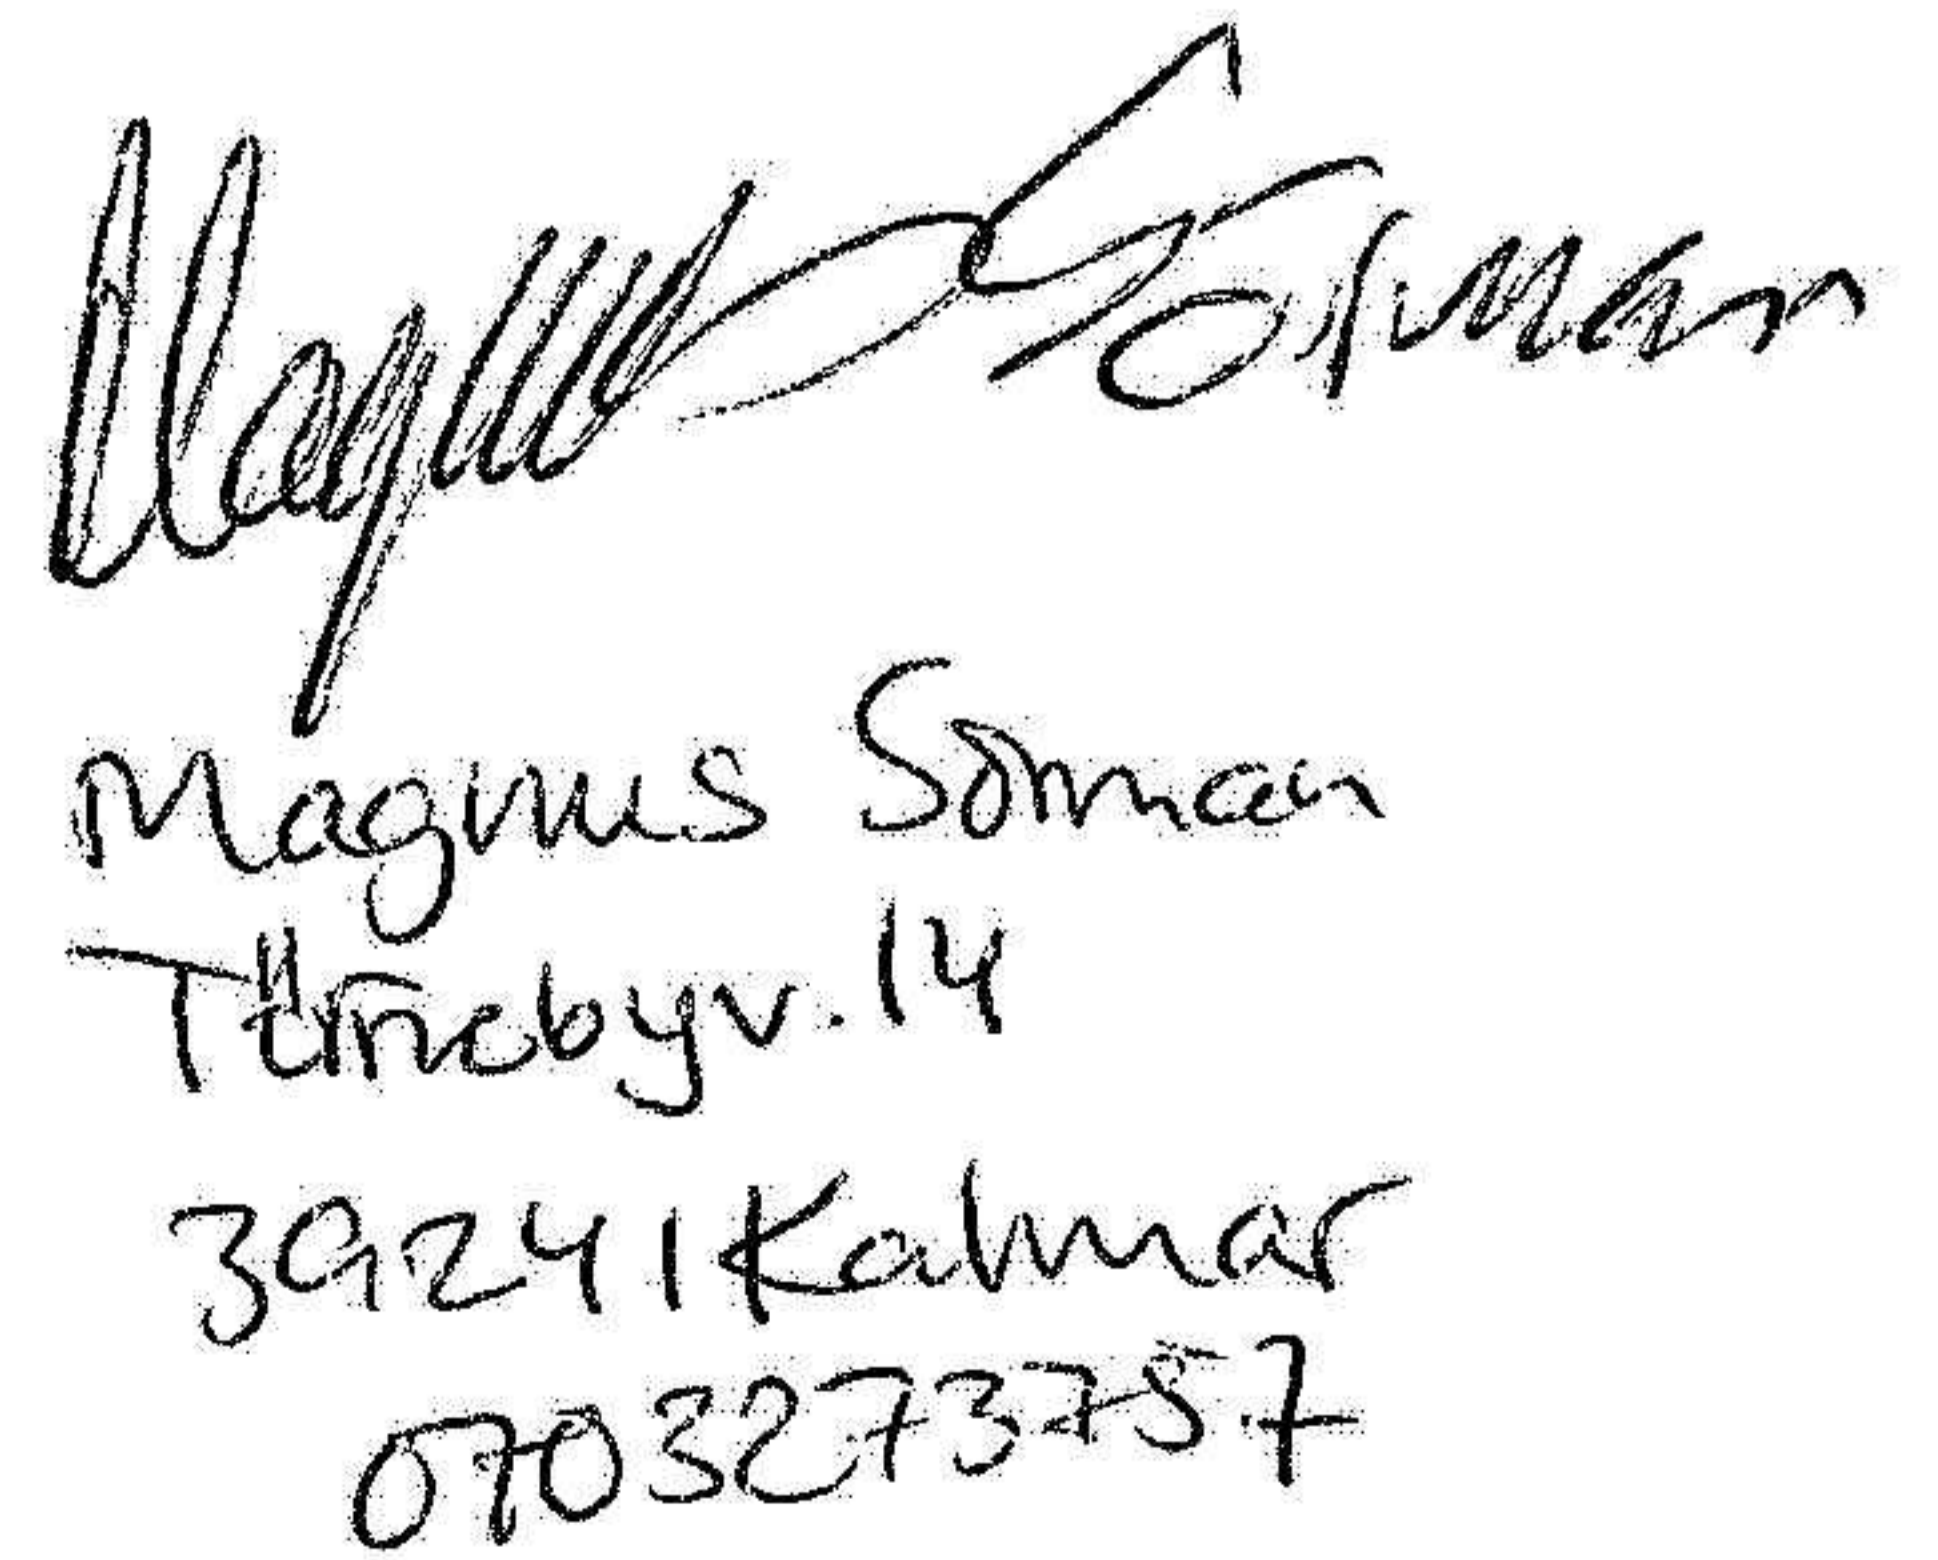 Magnus Sörman
Magnus Sörman
Törnebyv. 14
39241 Kalmar
0703273757